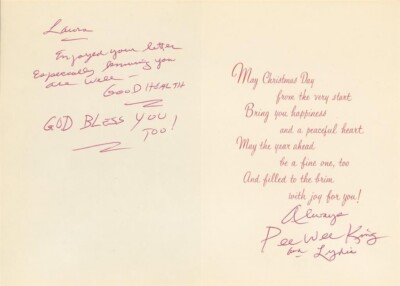 Laura
Enjoyed your letter
Especially knowing you
are well —
GOOD HEALTH
GOD BLESS YOU
TOO!
May Christmas Day
from the very start
Bring you happiness
and a peaceful heart,
May the year ahead
be a fine one, too
And filled to the brim
with joy for you!
Always
Pee Wee King
Lydia